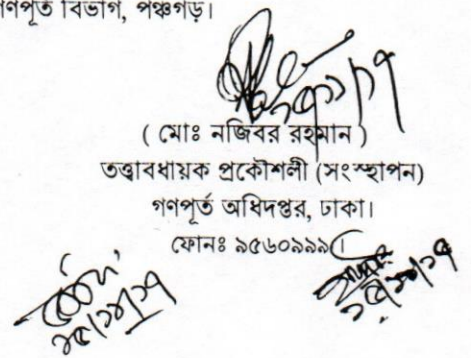 গণপূর্ত বিভাগ, পঞ্চগড়।
( মোঃ নজিবর রহমান )
তত্ত্বাবধায়ক প্রকৌশলী (সংস্থাপন)
গণপূর্ত অধিদপ্তর, ঢাকা।
ফোনঃ ৯৫৬০৯৯৯।